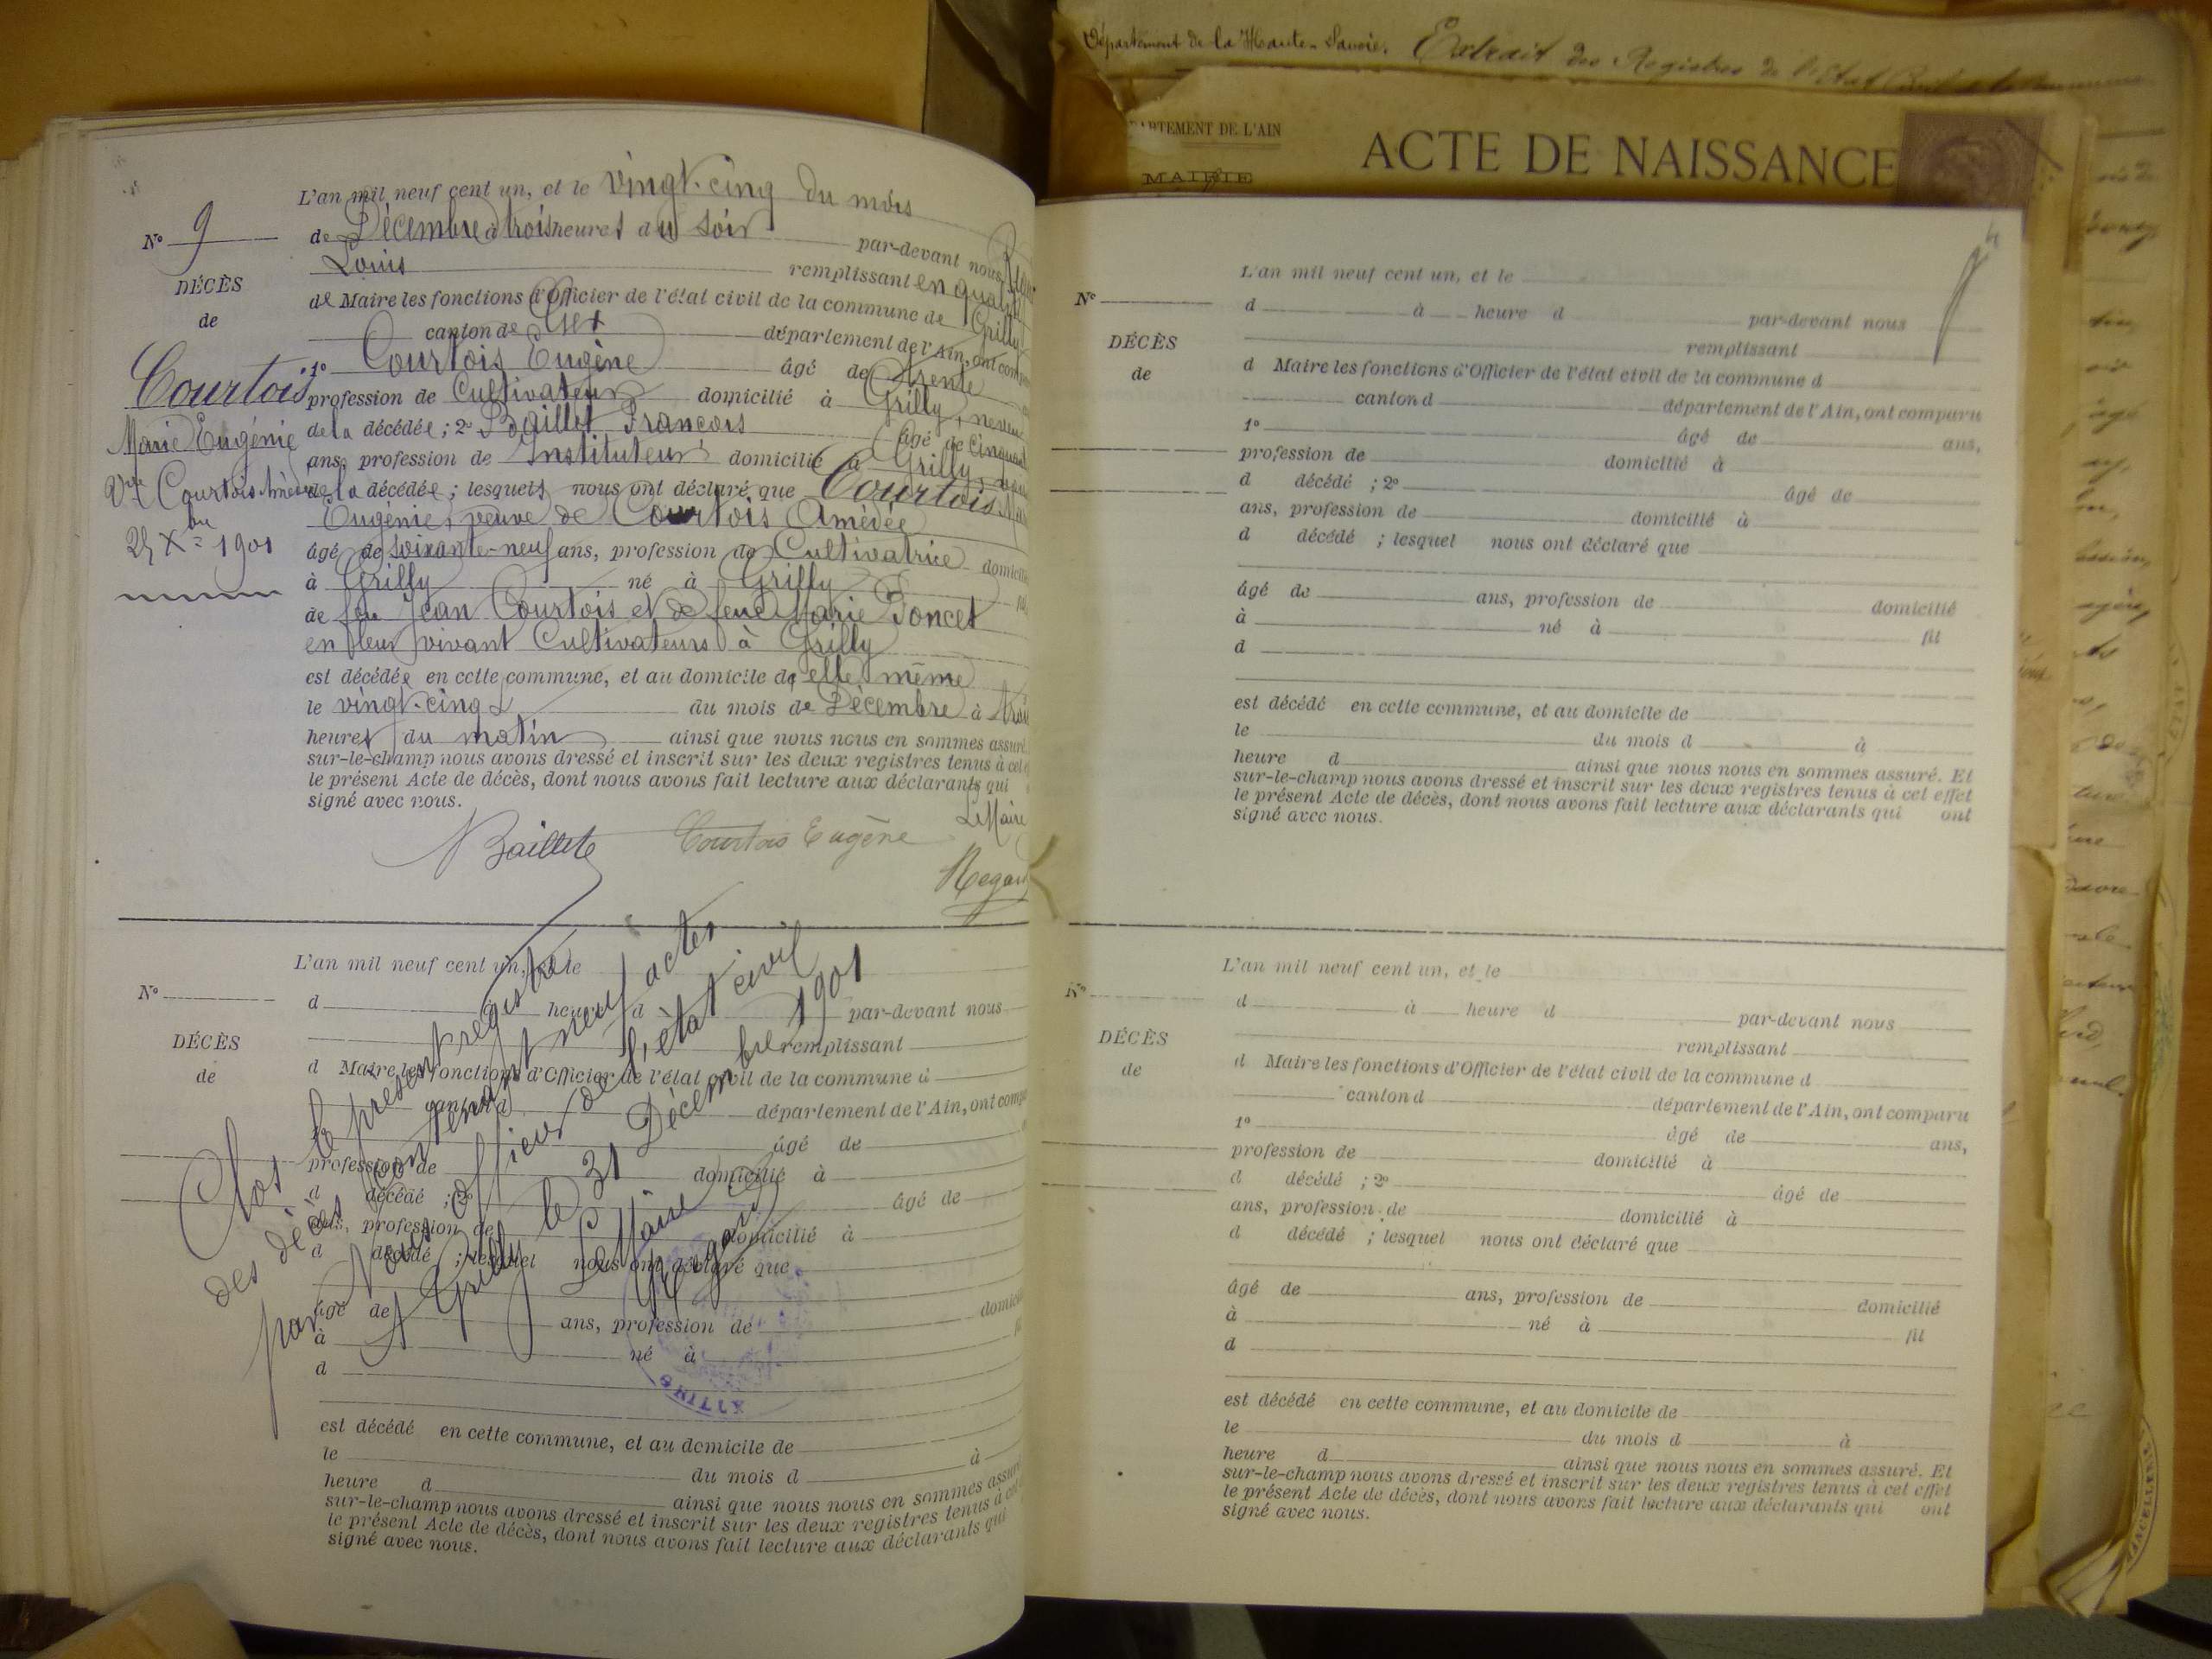 Département de la Haute-Savoie. Extrait des Registres de l'Etat Civil de la
PARTEMENT DE L'AIN
MAIRIE
ACTE DE NAISSANCE
Nº 9
DÉCÈS
de
Courtois
Marie Eugénie
Vve Courtois Amédée
25 Xbre 1901
L'an mil neuf cent un, et le vingt-cinq du mois
de Décembre à trois heures du soir par-devant nous
Louis remplissant en qualité
de Maire les fonctions d'Officier de l'état civil de la commune de Grilly
canton de Gex département de l'Ain, ont comp
1º Courtois Eugène âgé de trente
profession de Cultivateur domicilié à Grilly, neveu
de la décédée ; 2º Baillet François âgé de cinquante
ans, profession de Instituteur domicilié à Grilly,
de la décédée ; lesquels nous ont déclaré que Courtois Marie
Eugénie, veuve de Courtois Amédée
âgé de soixante-neuf ans, profession de Cultivatrice domicilié
à Grilly né à Grilly
de feu Jean Courtois et de feue Marie Poncet
en leur vivant Cultivateurs à Grilly
est décédée en cette commune, et au domicile de elle même
le vingt-cinq du mois de Décembre à trois
heures du matin ainsi que nous nous en sommes assuré
sur-le-champ nous avons dressé et inscrit sur les deux registres tenus à cet
le présent Acte de décès, dont nous avons fait lecture aux déclarants qui
signé avec nous.
Le Maire
Baillet Courtois Eugène
Regard
Nº
DÉCÈS
de
L'an mil neuf cent un, et le
d à heure d par-devant nous
remplissant
d Maire les fonctions d'Officier de l'état civil de la commune d
canton d département de l'Ain, ont comp
âgé de
profession de domicilié à
d décédé ; 2º âgé de
ans, profession de domicilié à
d décédé ; lesquel nous ont déclaré que
âgé de ans, profession de domicilié
à né à
d
est décédé en cette commune, et au domicile de
le du mois d à
heure d ainsi que nous nous en sommes assuré
sur-le-champ nous avons dressé et inscrit sur les deux registres tenus à cet
le présent Acte de décès, dont nous avons fait lecture aux déclarants qui
signé avec nous.
Clos le présent registre
des décès contenant neuf actes
par Nous officier de l'état civil
A Grilly le 31 Décembre 1901
Le Maire
Regard
GRILLY
Nº
DÉCÈS
de
L'an mil neuf cent un, et le
d à heure d par-devant nous
remplissant
d Maire les fonctions d'Officier de l'état civil de la commune d
canton d département de l'Ain, ont comparu
1º âgé de ans,
profession de domicilié à
d décédé ; 2º âgé de
ans, profession de domicilié à
d décédé ; lesquel nous ont déclaré que
âgé de ans, profession de domicilié
à né à fil
d
est décédé en cette commune, et au domicile de
le du mois d à
heure d ainsi que nous nous en sommes assuré. Et
sur-le-champ nous avons dressé et inscrit sur les deux registres tenus à cet effet
le présent Acte de décès, dont nous avons fait lecture aux déclarants qui ont
signé avec nous.
Nº
DÉCÈS
de
L'an mil neuf cent un, et le
d à heure d par-devant nous
remplissant
d Maire les fonctions d'Officier de l'état civil de la commune d
canton d département de l'Ain, ont comparu
1º âgé de ans,
profession de domicilié à
d décédé ; 2º âgé de
ans, profession de domicilié à
d décédé ; lesquel nous ont déclaré que
âgé de ans, profession de domicilié
à né à fil
d
est décédé en cette commune, et au domicile de
le du mois d à
heure d ainsi que nous nous en sommes assuré. Et
sur-le-champ nous avons dressé et inscrit sur les deux registres tenus à cet effet
le présent Acte de décès, dont nous avons fait lecture aux déclarants qui ont
signé avec nous.